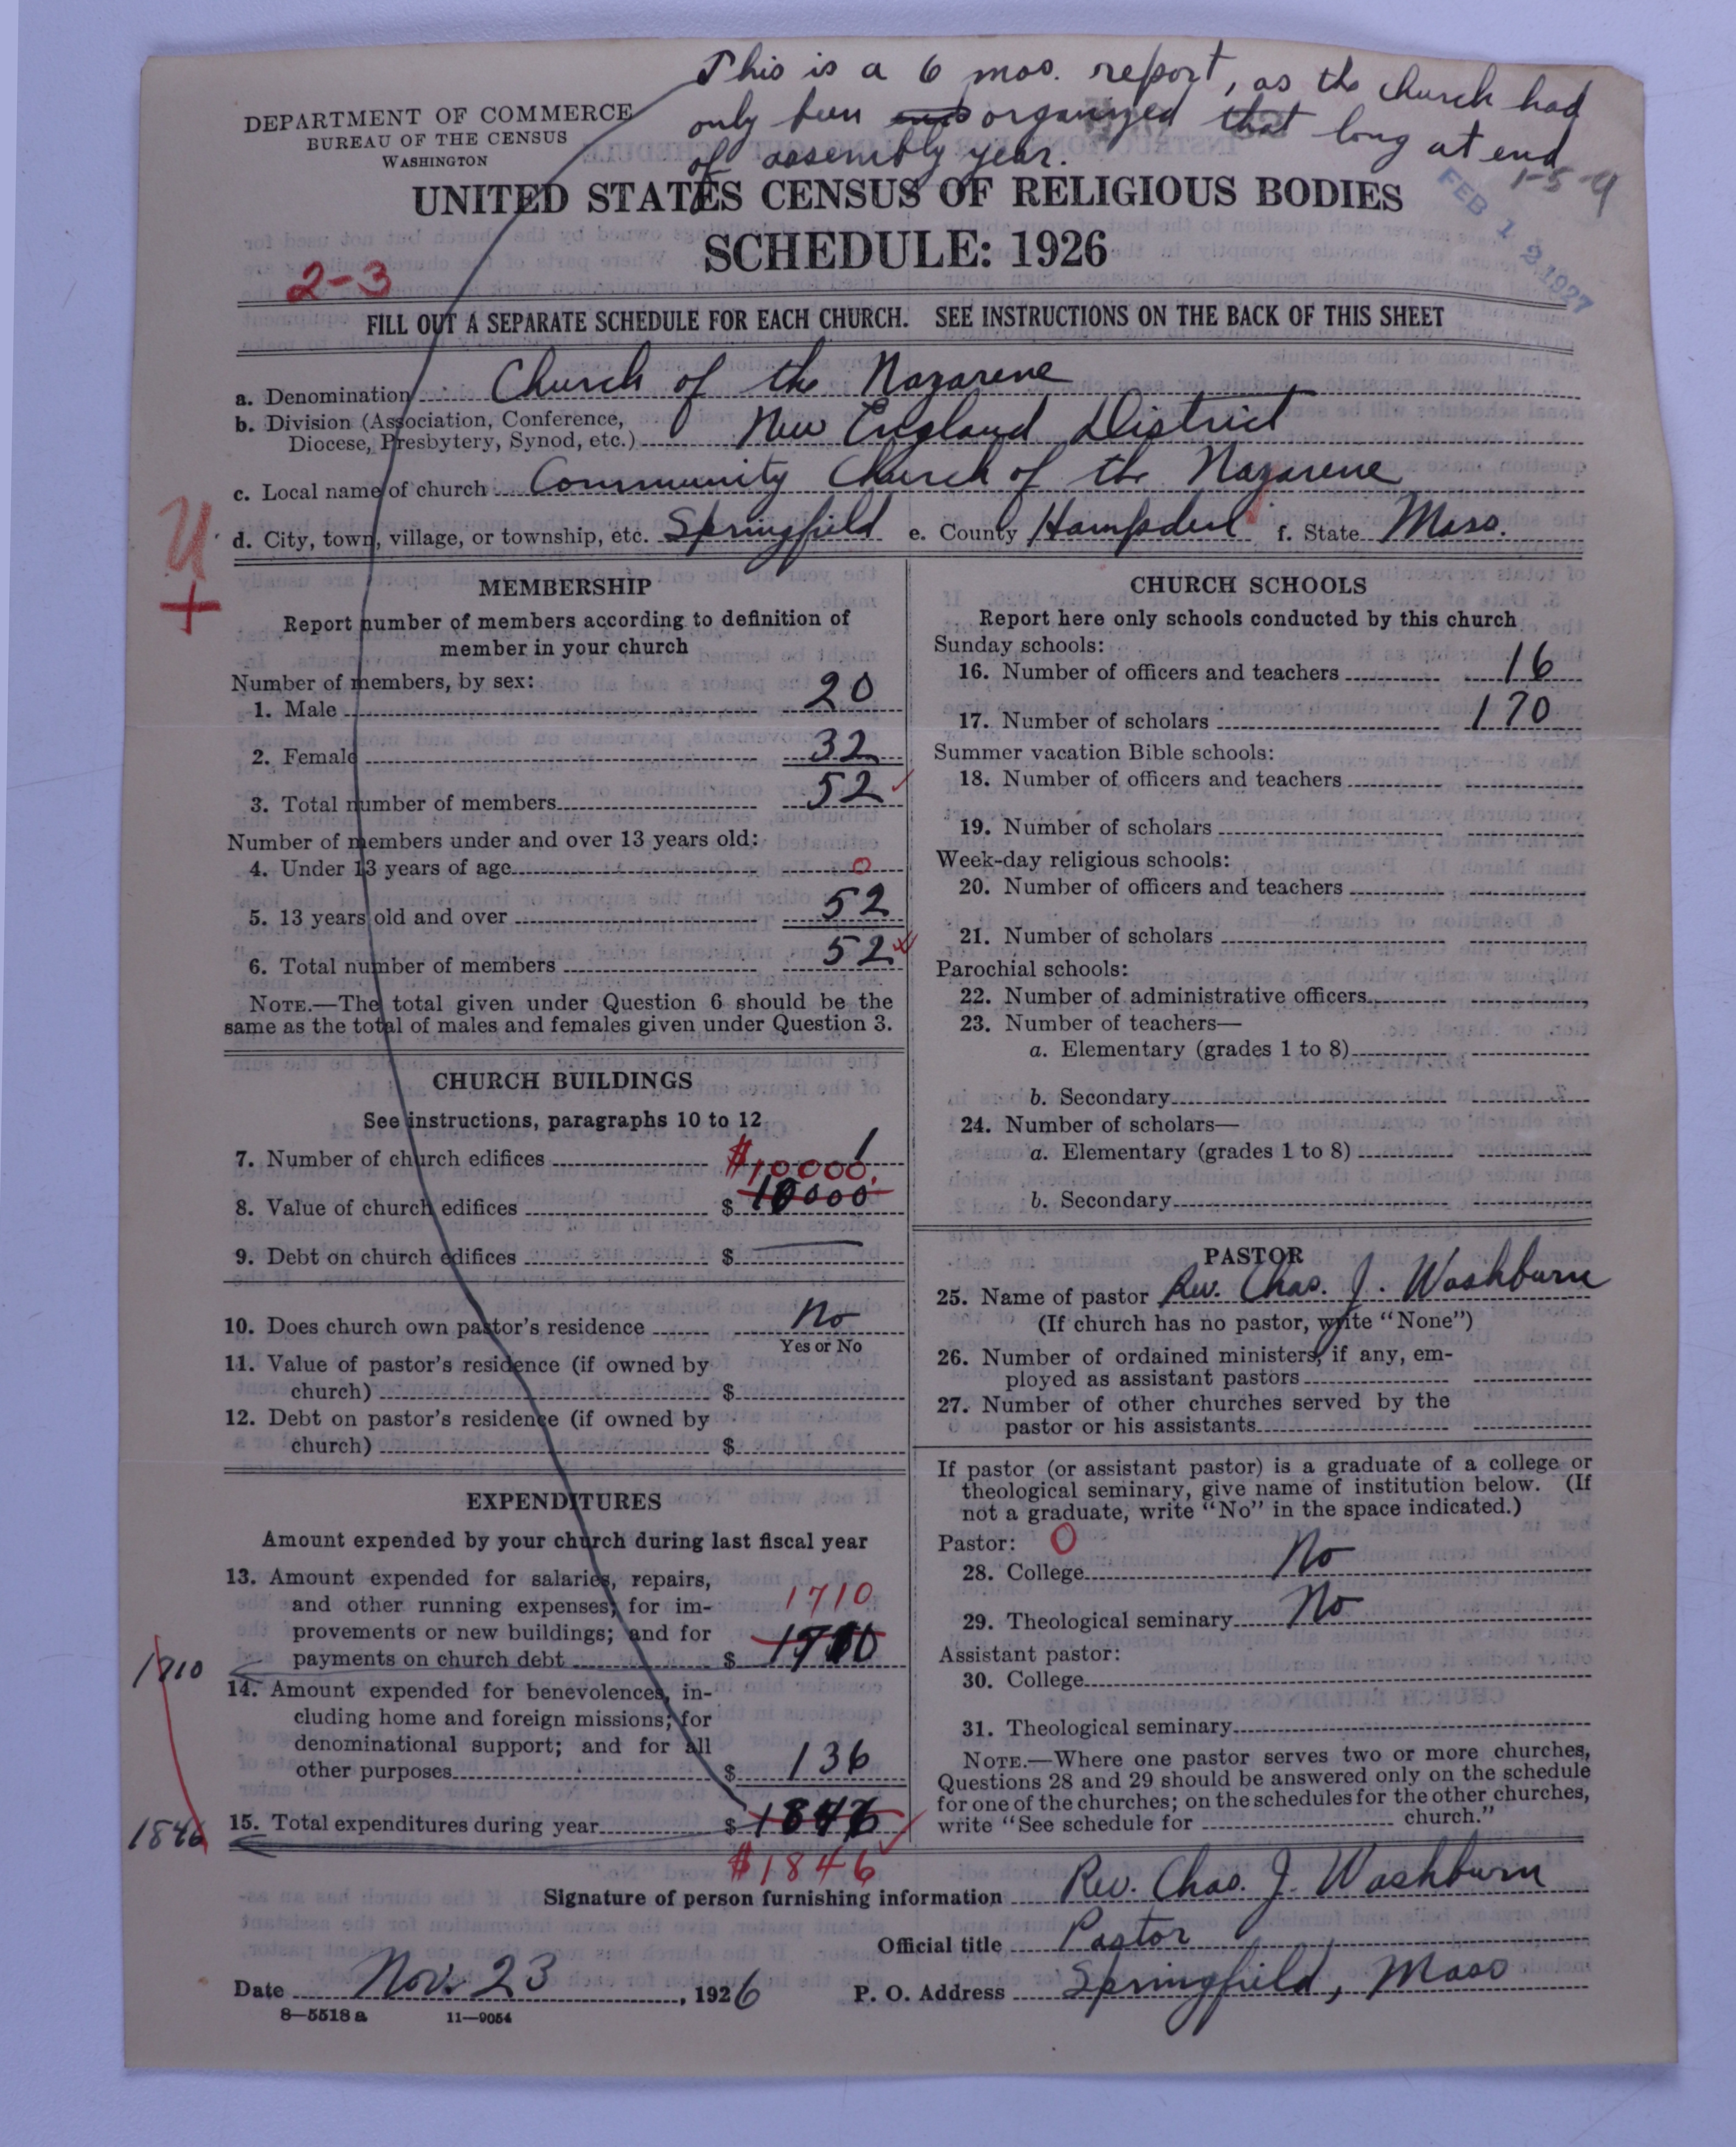 This is a 6 mos. report, as the church had
only been organized that long at end
of assembly year.
DEPARTMENT OF COMMERCE
BUREAU OF THE CENSUS
WASHINGTON
1-5-9
FEB 12 1927
UNITED STATES CENSUS OF RELIGIOUS BODIES
SCHEDULE: 1926
2-3
FILL OUT A SEPARATE SCHEDULE FOR EACH CHURCH. SEE INSTRUCTIONS ON THE BACK OF THIS SHEET
a. Denomination Church of the Nazarene
b. Division (Association, Conference,
Diocese, Presbytery, Synod, etc.) New England District
c. Local name of church Community Church of the Nazarene
d. City, town, village, or township, etc. Springfield e. County Hampden f. State Mass.
U
+
MEMBERSHIP
Report number of members according to definition of
member in your church
Number of members, by sex:
1. Male 20
2. Female 32
3. Total number of members 52
Number of members under and over 13 years old:
4. Under 13 years of age 0
5. 13 years old and over 52
6. Total number of members 52
NOTE.—The total given under Question 6 should be the
same as the total of males and females given under Question 3.
CHURCH BUILDINGS
See instructions, paragraphs 10 to 12
7. Number of church edifices 1
$10000.
8. Value of church edifices $ 10000
9. Debt on church edifices $
10. Does church own pastor's residence No
Yes or No
11. Value of pastor's residence (if owned by
church) $
12. Debt on pastor's residence (if owned by
church) $
EXPENDITURES
Amount expended by your church during last fiscal year
13. Amount expended for salaries, repairs,
and other running expenses; for im- 1710
provements or new buildings; and for
payments on church debt $ 1710
1710
14. Amount expended for benevolences, in-
cluding home and foreign missions; for
denominational support; and for all
other purposes $ 136
15. Total expenditures during year $ 1846
1846
$1846
CHURCH SCHOOLS
Report here only schools conducted by this church
Sunday schools:
16. Number of officers and teachers 16
17. Number of scholars 170
Summer vacation Bible schools:
18. Number of officers and teachers
19. Number of scholars
Week-day religious schools:
20. Number of officers and teachers
21. Number of scholars
Parochial schools:
22. Number of administrative officers
23. Number of teachers—
a. Elementary (grades 1 to 8)
b. Secondary
24. Number of scholars—
a. Elementary (grades 1 to 8)
b. Secondary
PASTOR
25. Name of pastor Rev. Chas. J. Washburn
(If church has no pastor, write "None")
26. Number of ordained ministers, if any, em-
ployed as assistant pastors
27. Number of other churches served by the
pastor or his assistants
If pastor (or assistant pastor) is a graduate of a college or
theological seminary, give name of institution below. (If
not a graduate, write "No" in the space indicated.)
Pastor: 0
28. College No
29. Theological seminary No
Assistant pastor:
30. College
31. Theological seminary
NOTE.—Where one pastor serves two or more churches,
Questions 28 and 29 should be answered only on the schedule
for one of the churches; on the schedules for the other churches,
write "See schedule for church."
Signature of person furnishing information Rev. Chas. J. Washburn
Official title Pastor
Date Nov. 23, 1926 P. O. Address Springfield, Mass
8—5518a 11—9054